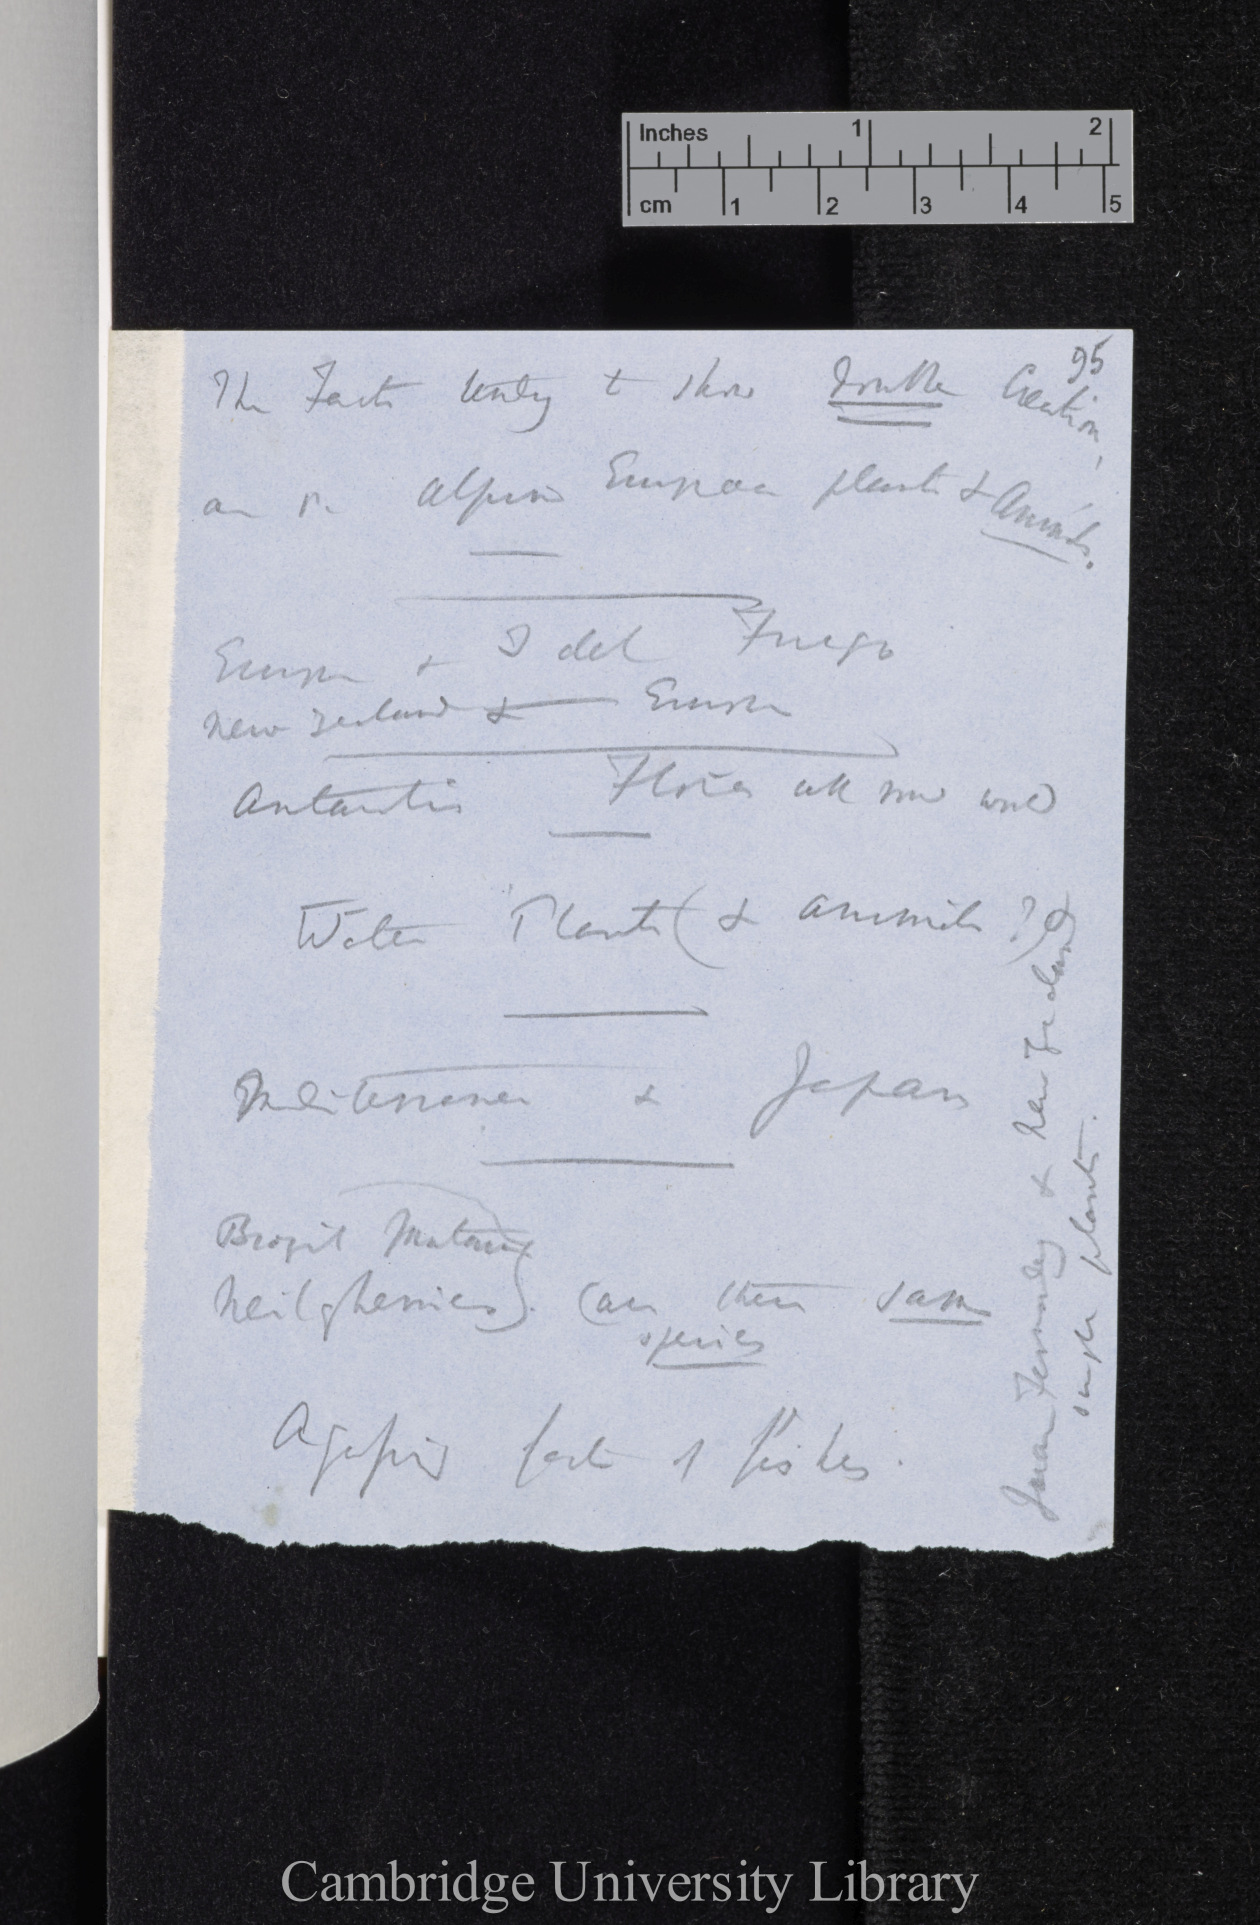 Inches 1 2
cm 1 2 3 4 5
95
The Facts tending to show double Creation,
are on Alpine European plants & Animals.
Europe & T del Fuego
New Zealand & Europe
Antarctic Flora all round world
Water Plants (& animals?)
Mediterranean & Japan
Brazil
Neilgherries). (are these same
species
Agassiz fact of fishes.
Juan Fernandez & New Zealand
single plants.
Cambridge University Library